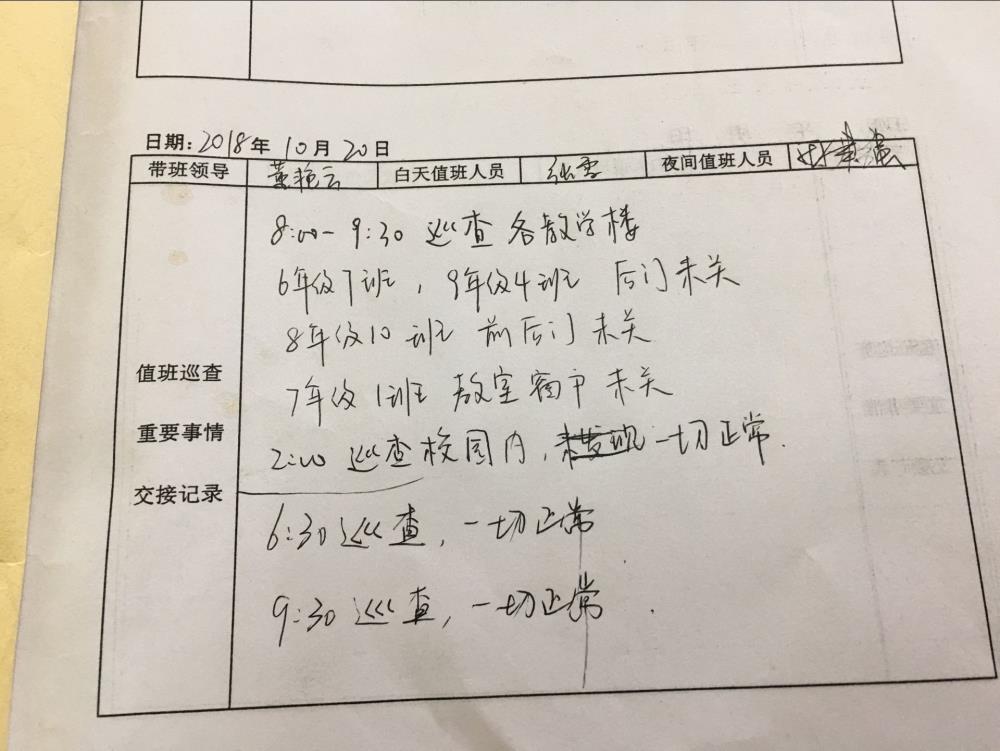 日期:2018年10月20日
带班领导 董艳云 白天值班人员 张雪 夜间值班人员
8:00-9:30 巡查各教学楼
6年级7班,9年级4班 后门未关
8年级10班 前后门未关
7年级1班 教室窗户未关
值班巡查
重要事情
2:00 巡查校园内,一切正常.
交接记录
6:30巡查,一切正常
9:30巡查,一切正常.